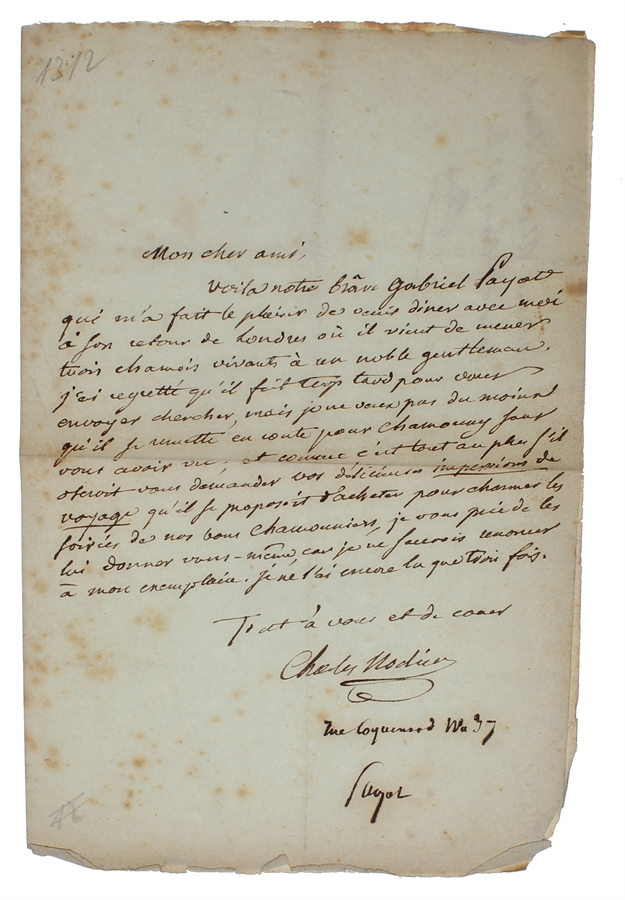 1312
Mon cher ami,
Voila notre brave Gabriel Payot
qui m'a fait le plaisir de venir diner avec moi
à son retour de Londres où il vient de mener
trois chamois vivants à un noble gentleman.
j'ai regretté qu'il fût trop tard pour vous
envoyer chercher, mais je ne veux pas du moins
qu'il se remette en route pour Chamouny sans
vous avoir vu; et comme c'est tout au plus s'il
oseroit vous demander vos délicieuses impressions de
voyage qu'il se proposoit d'acheter pour charmer les
soirées de nos bons Chamouniers, je vous prie de les
lui donner vous-même, car je ne saurois renoncer
à mon exemplaire. je ne l'ai encore lu que trois fois.
Tout à vous et de coeur
Charles Nodier
rue Coquenard No 37
Payot